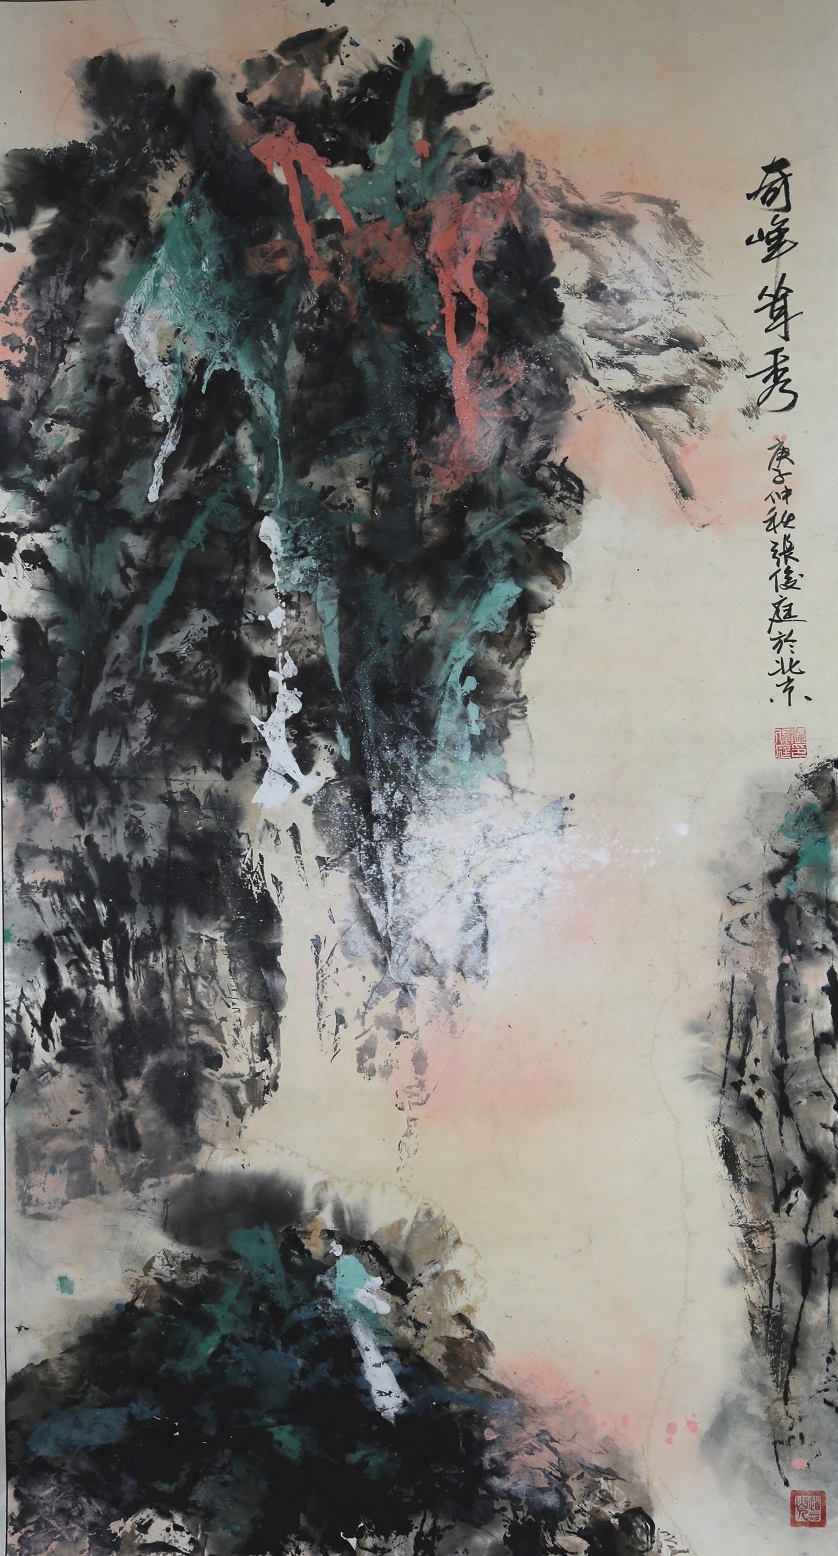 奇峰耸秀
庚子仲秋張俊庭於北京